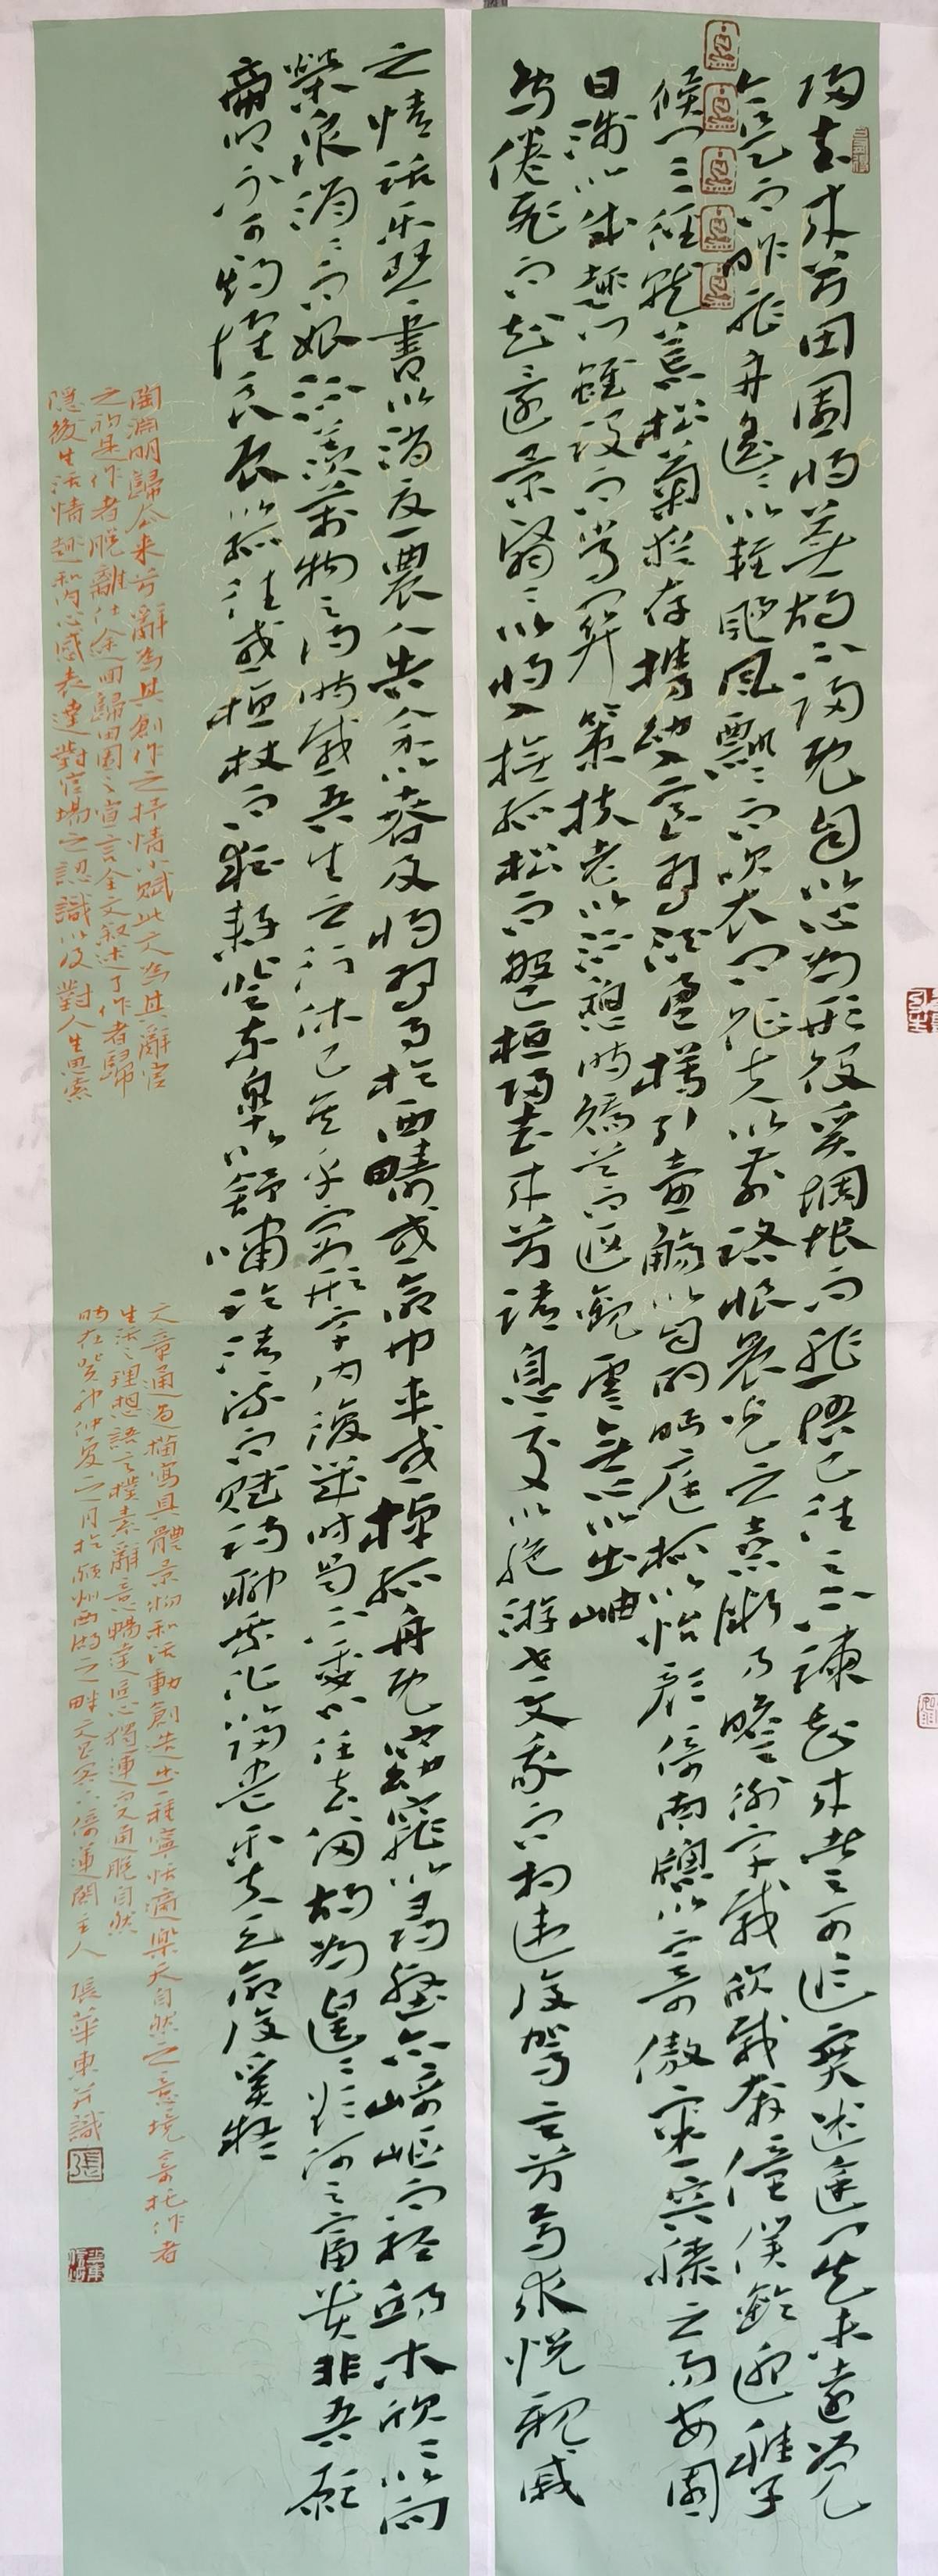 歸去來兮田園將蕪胡不歸既自以心為形役奚惆悵而悲悟已往之不諫知來者之可追實迷途其未遠覺
今是而昨非舟遙遙以輕颺風飄飄而吹衣問征夫以前路恨晨光之熹微乃瞻衡宇載欣載奔僮僕歡迎稚子
候門三徑就荒松菊猶存攜幼入室有酒盈樽引壺觴以自酌眄庭柯以怡顏倚南窗以寄傲審容膝之易安園
日涉以成趣門雖設而常關策扶老以流憩時矯首而遐觀雲無心以出岫
鳥倦飛而知還景翳翳以將入撫孤松而盤桓歸去來兮請息交以絕游世與我而相違復駕言兮焉求悅親戚
之情話樂琴書以消憂農人告余以春及將有事於西疇或命巾車或棹孤舟既窈窕以尋壑亦崎嶇而經邱木欣欣以向
榮泉涓涓而始流羨萬物之得時感吾生之行休已矣乎寓形宇內復幾時曷不委心任去留胡為遑遑欲何之富貴非吾願
帝鄉不可期懷良辰以孤往或植杖而耘耔登東皋以舒嘯臨清流而賦詩聊乘化以歸盡樂夫天命復奚疑
陶淵明歸去來兮辭為其創作之抒情小賦此文為其辭官
之的是作者脫離仕途回歸田園之宣言全文叙述了作者歸
隱後生活情趣和內心感表達對官場之認識以及對人生思索
文章通過描寫具體景物和活動創造出一種寧恬適樂天自然之意境寄托作者
生活之理想語言樸素辭意暢達匠心獨運又通脫自然
時在癸卯仲夏之月於潁州西湖之畔 蓮閣主人 張華東并識
張